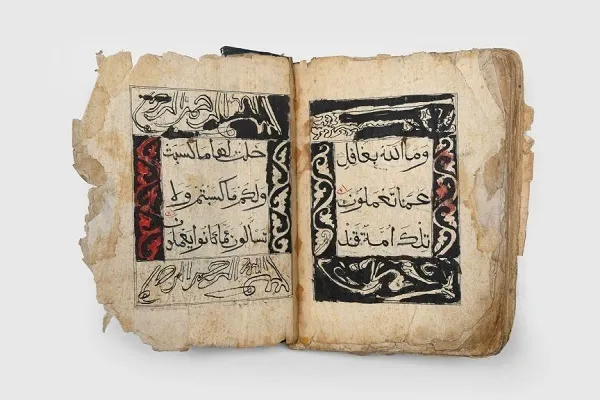 وما الله بغافل
عما تعملون
تلك امة قد
الله الرحمن الرحيم
خلت لها ما كسبت
ولكم ما كسبتم ولا
تسألون عما كانوا يعملون
الرحمن الرحيم